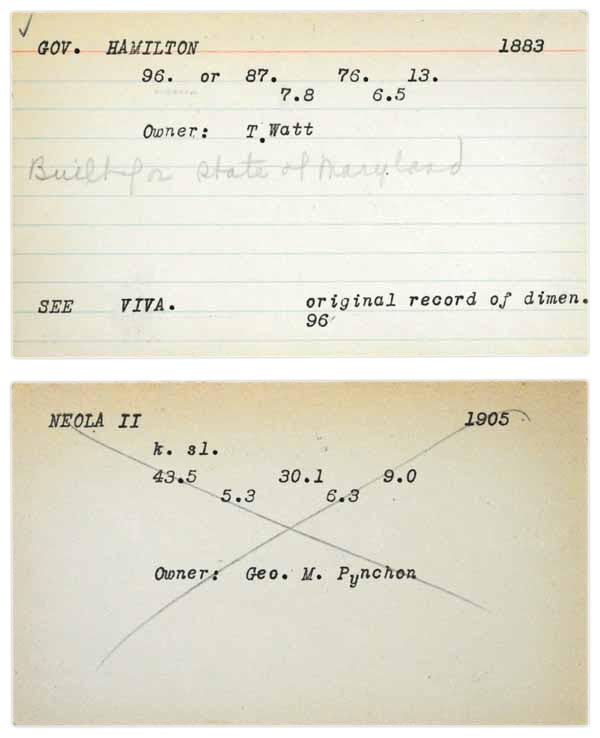 GOV. HAMILTON 1883
96. or 87. 76. 13.
7.8 6.5
Owner: T. Watt
Built for State of Maryland
SEE VIVA. original record of dimen.
96'
NEOLA II 1905
k. sl.
43.5 30.1 9.0
5.3 6.3
Owner: Geo. M. Pynchon